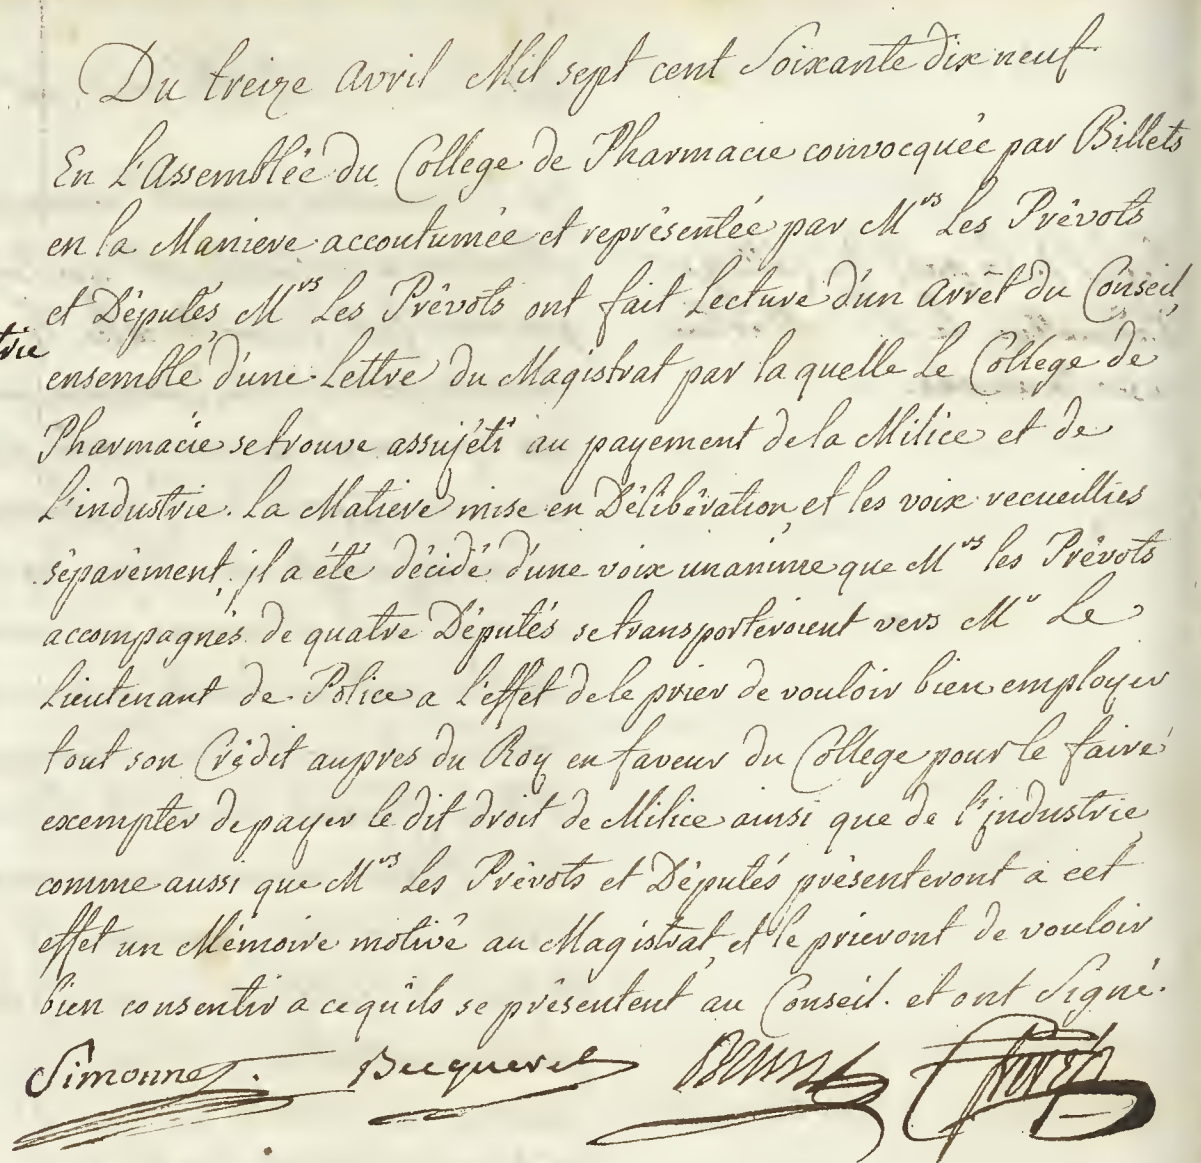 Du treize Avril Mil sept cent Soixante dix neuf
En L'Assemblée du College de Pharmacie convocquée par Billets
en la Maniere accoutumée et représentée par Mrs Les Prévots
et Députés, Mrs Les Prévots ont fait Lecture d'un Arrêt du Conseil,
ensemble d'une Lettre du Magistrat par laquelle Le College de
Pharmacie se trouve assujéti au payement de la Milice et de
L'industrie. La Matiere mise en Délibération, et les voix recueillies
séparément, jl a été décidé d'une voix unanime que Mrs les Prévots
accompagnés de quatre Députés se transporteroient vers Mr Le
Lieutenant de Police a L'effet de le prier de vouloir bien employer
tout son Crédit aupres du Roy en faveur du College pour le faire
exempter de payer le dit droit de Milice ainsi que de l'jndustrie,
comme aussi que Mrs Les Prévots et Députés présenteront a cet
effet un Mémoire motivé au Magistrat, et le prieront de vouloir
bien consentir a ce qu'ils se présentent au Conseil. et ont Signé.
Simonnet. Becquerel